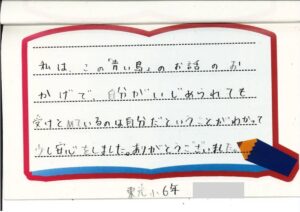 私は、この「青い鳥」のお話のお
かげで、自分がいじめられても
受けとめているのは自分だということがわかって
少し安心をしました。ありがとうございました。
東元小6年